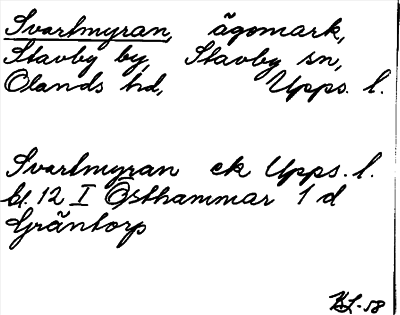 Svartmyran, ägomark,
Stavby by, Stavby sn,
Olands hd, Upps. l.
Svartmyran ek Upps. l.
bl. 12 I Östhammar 1 d
Gräntorp
KL-58